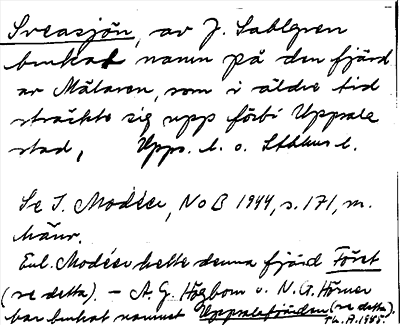 Sveasjön, av J. Sahlgren
brukat namn på den fjärd
av Mälaren, som i äldre tid
sträckte sig upp förbi Uppsala
stad, Upps. l. o. Sthlms l.
Se I. Modéer, NoB 1944, s. 171, m.
hänv.
Enl. Modéer hette denna fjärd Föret
(se detta). – A. G. Högbom o. N. G. Hörner
har brukat namnet Uppsalafjärden (se detta).